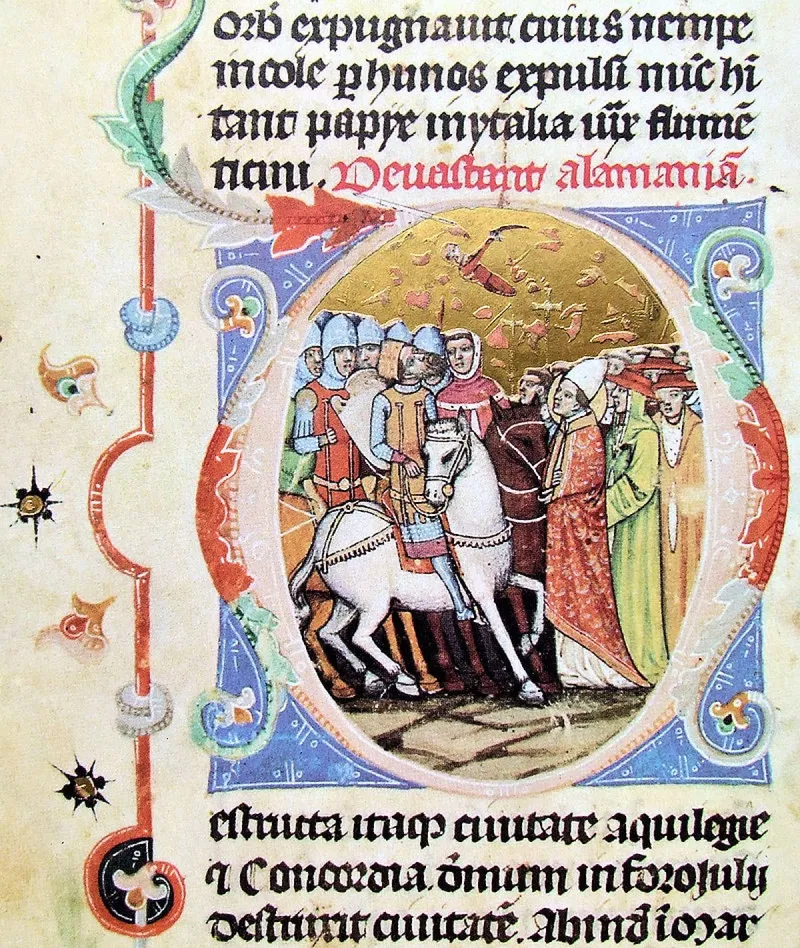 orb̄ expugnauit. cuius nempe
incole ꝑ hunos expulsi nūc hi
tant papye in ytalia iux̄ flumē
ticini. Deuastant alamaniā.
estructa itaqꝫ ciuitate aquilegie
⁊ Concordia. dōmum in foro Julij
destruxit ciuitatē. Ab ind̄ ī Mar